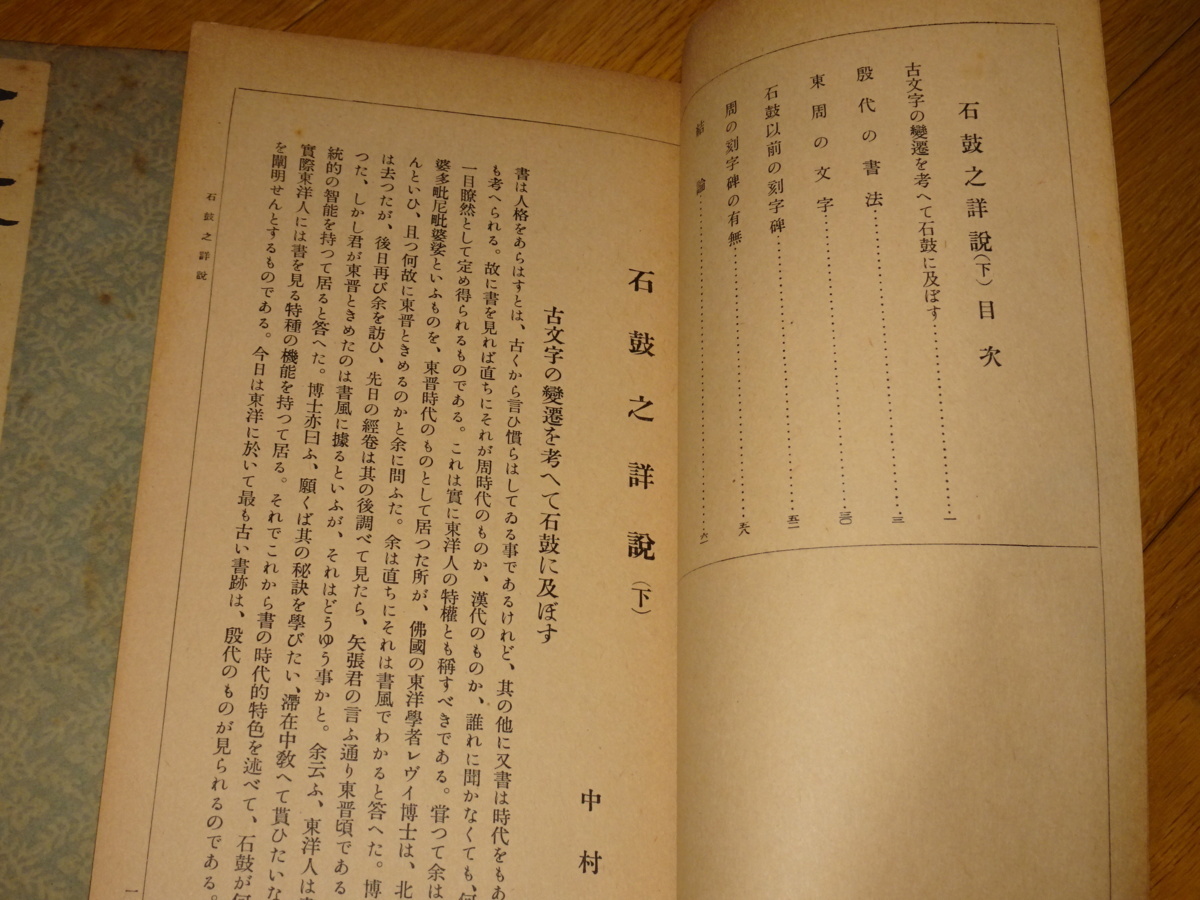 石鼓之詳說(下)目次
古文字の變遷を考へて石鼓に及ぼす……一
殷代の書法……三
東周の文字……三〇
石鼓以前の刻字碑……五二
周の刻字碑の有無……五八
結論……六一
石鼓之詳說(下)
中村
古文字の變遷を考へて石鼓に及ぼす
書は人格をあらはすとは、古くから言ひ慣らはしてゐる事であるけれど、其の他に又書は時代をもあ
も考へられる。故に書を見れば直ちにそれが周時代のものか、漢代のものか、誰れに聞かなくても、何
一目瞭然として定め得られるものである。これは實に東洋人の特權とも稱すべきである。甞つて余は
婆多毗尼毗婆娑といふものを、東晋時代のものとして居つた所が、佛國の東洋學者レヴイ博士は、北
んといひ、且つ何故に東晋ときめるのかと余に問ふた。余は直ちにそれは書風でわかると答へた。博
は去つたが、後日再び余を訪ひ、先日の經卷は其の後調べて見たら、矢張君の言ふ通り東晋頃である
つた、しかし君が東晋ときめたのは書風に據るといふが、それはどうゆう事かと。余云ふ、東洋人は
統的の智能を持つて居ると答へた。博士亦曰ふ、願くば其の秘訣を學びたい、滯在中敎へて貰ひたいな
實際東洋人には書を見る特種の機能を持つて居る。それでこれから書の時代的特色を述べて、石鼓が何
を闡明せんとするものである。今日は東洋に於いて最も古い書跡は、殷代のものが見られるのである。
石鼓之詳說
一